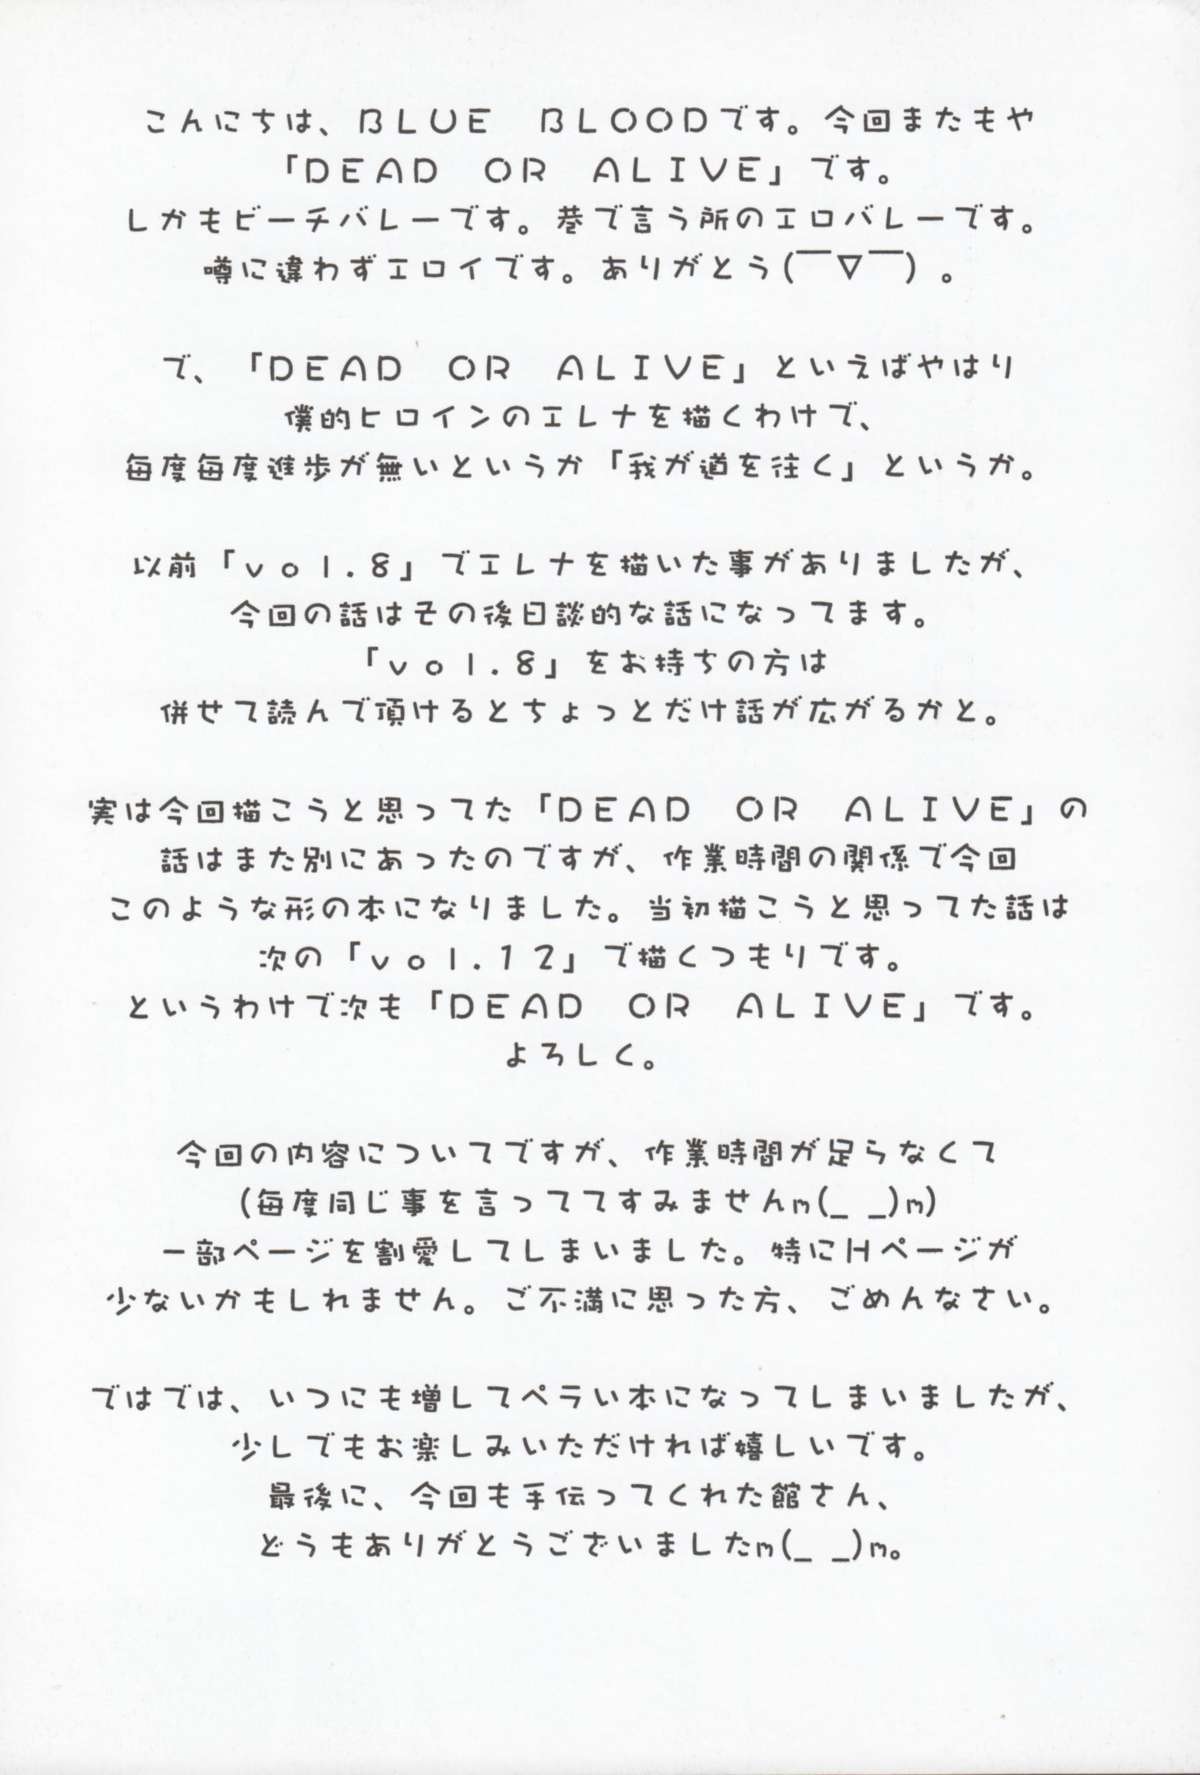 こんにちは、BLUE BLOODです。今回またもや
「DEAD OR ALIVE」です。
しかもビーチバレーです。巷で言う所のエロバレーです。
噂に違わずエロイです。ありがとう(￣▽￣)。
で、「DEAD OR ALIVE」といえばやはり
僕的ヒロインのエレナを描くわけで、
毎度毎度進歩が無いというか「我が道を往く」というか。
以前「vol.8」でエレナを描いた事がありましたが、
今回の話はその後日談的な話になってます。
「vol.8」をお持ちの方は
併せて読んで頂けるとちょっとだけ話が広がるかと。
実は今回描こうと思ってた「DEAD OR ALIVE」の
話はまた別にあったのですが、作業時間の関係で今回
このような形の本になりました。当初描こうと思ってた話は
次の「vol.12」で描くつもりです。
というわけで次も「DEAD OR ALIVE」です。
よろしく。
今回の内容についてですが、作業時間が足らなくて
(毎度同じ事を言っててすみませんm(_ _)m)
一部ページを割愛してしまいました。特にHページが
少ないかもしれません。ご不満に思った方、ごめんなさい。
ではでは、いつにも増してペラい本になってしまいましたが、
少しでもお楽しみいただければ嬉しいです。
最後に、今回も手伝ってくれた館さん、
どうもありがとうございましたm(_ _)m。